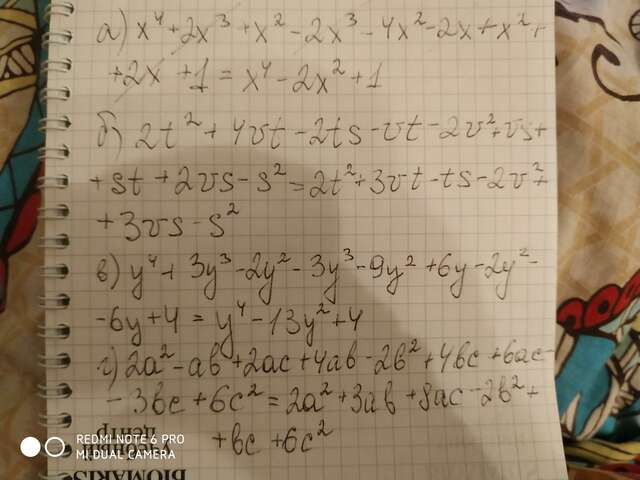 а) x⁴+2x³+x²-2x³-4x²-2x+x²+
+2x+1=x⁴-2x²+1
б) 2t²+4vt-2ts-vt-2v²+vs+
+st+2vs-s²=2t²+3vt-ts-2v²+
+3vs-s²
в) y⁴+3y³-2y²-3y³-9y²+6y-2y²-
-6y+4=y⁴-13y²+4
г) 2a²-ab+2ac+4ab-2b²+4bc+6ac-
-3bc+6c²=2a²+3ab+8ac-2b²+
+bc+6c²
REDMI NOTE 6 PRO
MI DUAL CAMERA
центр
BIOMARIS